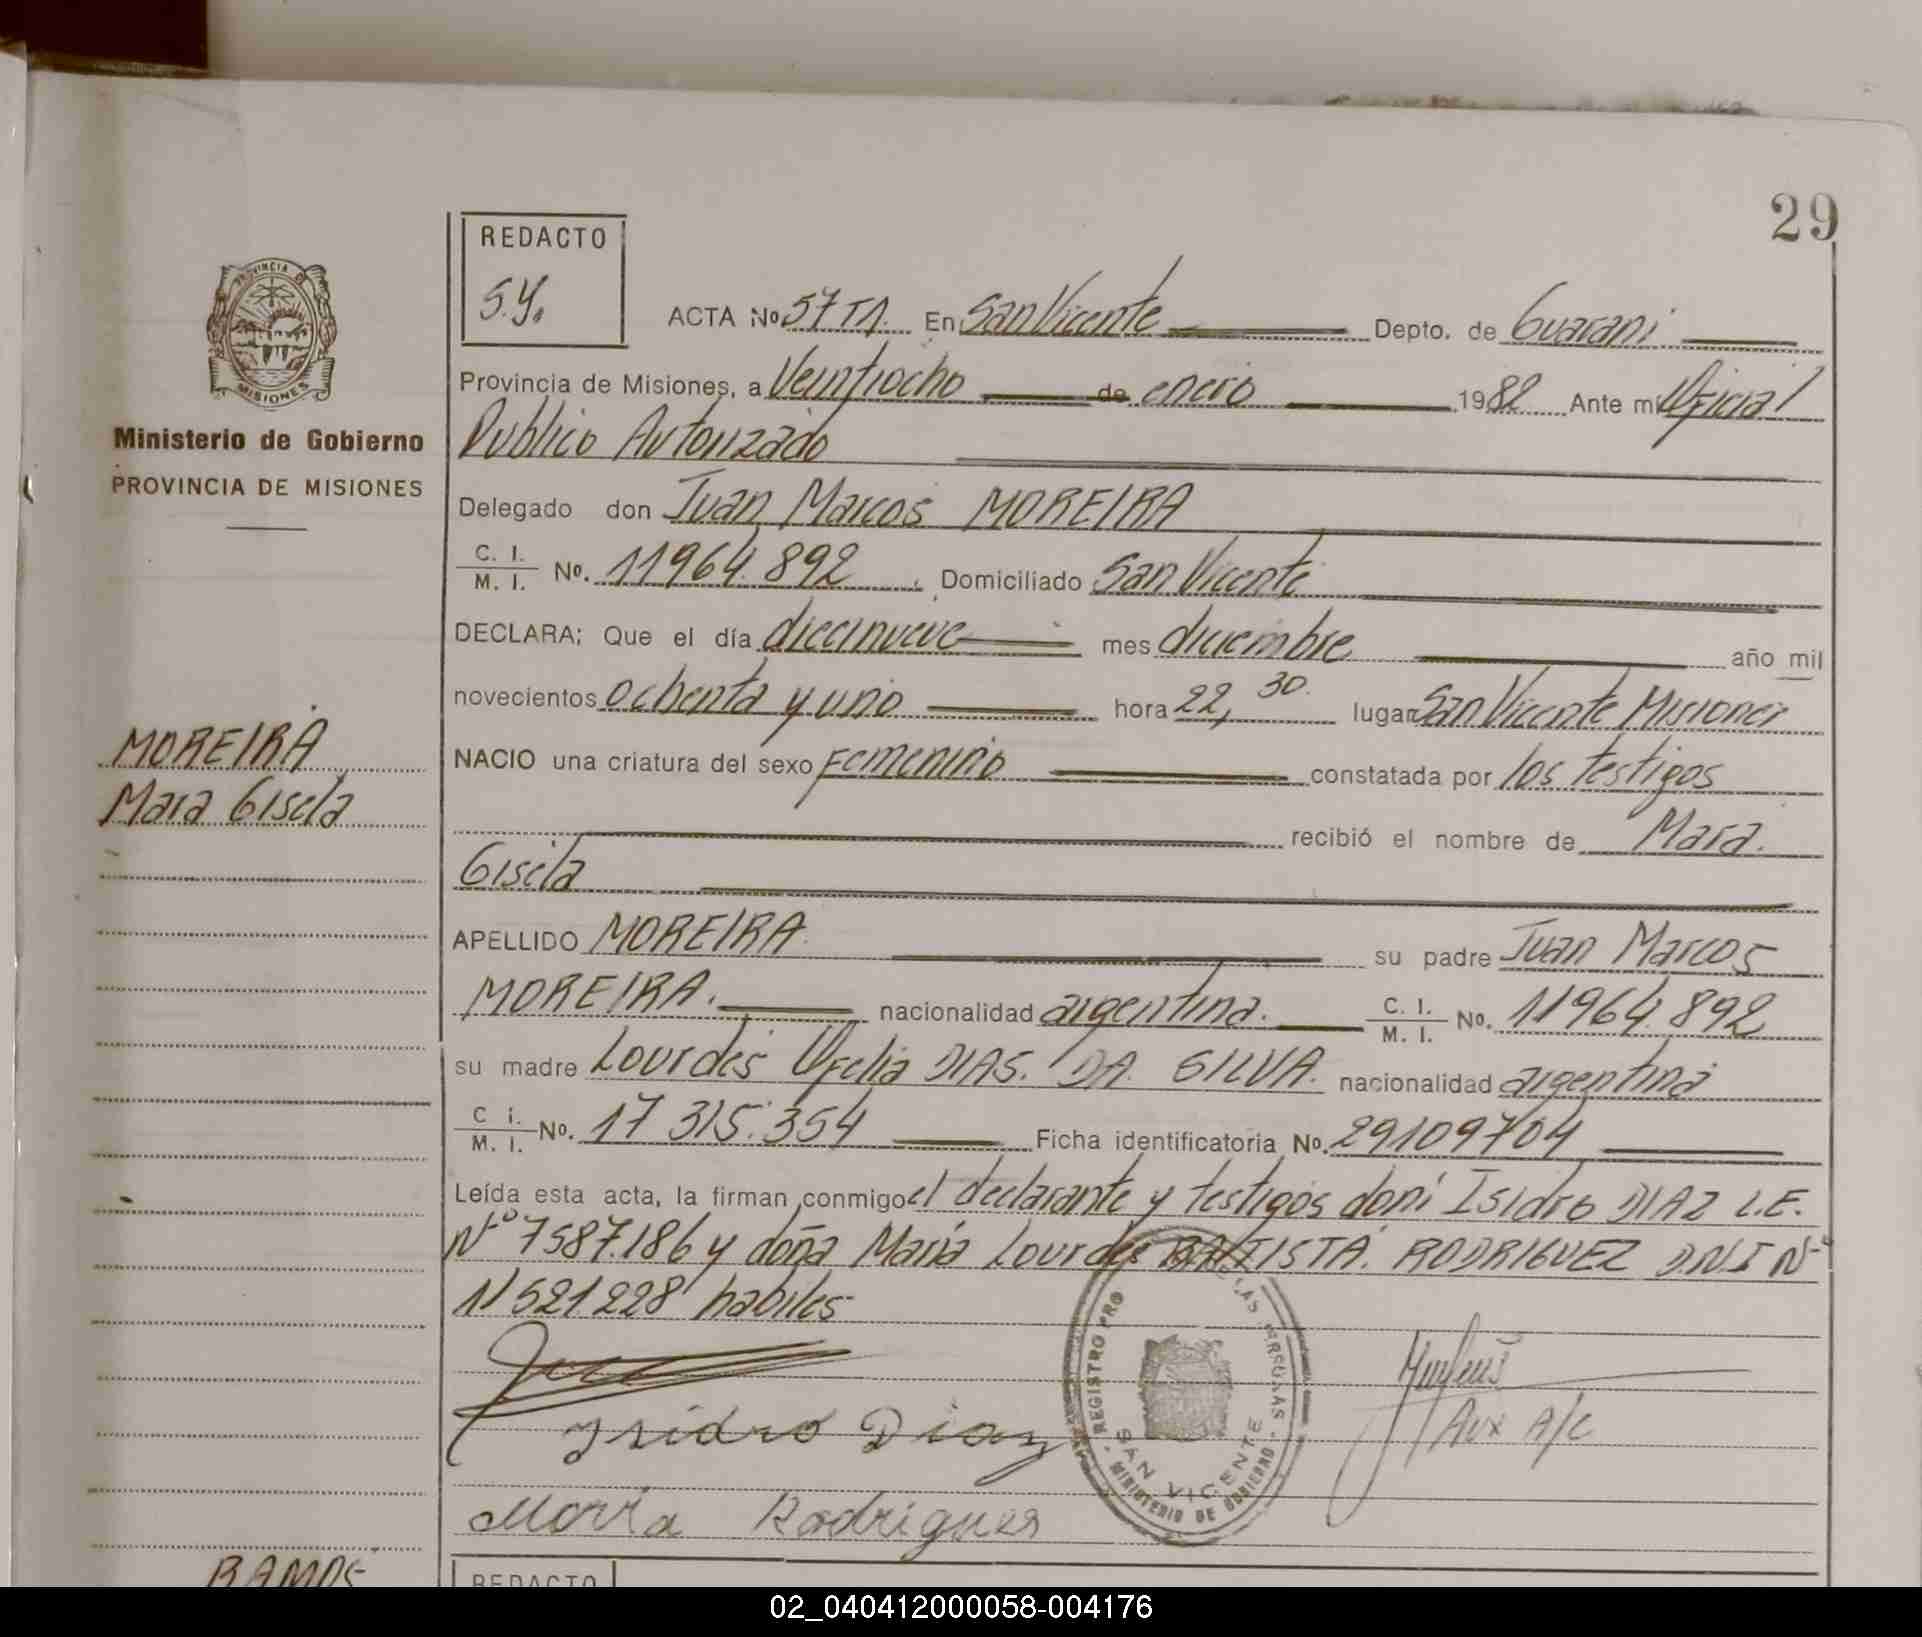 29
REDACTO
S.Y.
PROVINCIA DE
MISIONES
Ministerio de Gobierno
PROVINCIA DE MISIONES
ACTA Nº 57 TA. En San Vicente Depto. de Guarani
Provincia de Misiones, a Veintiocho de enero 1982 Ante mi Oficial
Publico Autorizado
Delegado don Juan Marcos MOREIRA
C. I. / M. I. Nº. 11964.892 Domiciliado San Vicente
DECLARA; Que el día diecinueve mes diciembre año mil
novecientos ochenta y uno hora 22,30 lugar San Vicente Misiones
MOREIRA
Mara Gisela
NACIO una criatura del sexo Femenino constatada por los testigos
recibió el nombre de Mara.
Gisela
APELLIDO MOREIRA su padre Juan Marcos
MOREIRA. nacionalidad argentina. C. I. / M. I. Nº. 11964.892
su madre Lourdes Ofelia DIAS. DA SILVA. nacionalidad argentina
C i. / M. I. Nº. 17 315.354 Ficha identificatoria Nº. 29109704
Leída esta acta, la firman conmigo el declarante y testigos don: Isidro DIAZ L.E.
Nº 7587.186 y doña María Lourdes BATISTA. RODRIGUEZ D.N.I Nº
11521.228 habiles
Isidro Diaz
Aux A/C
María Rodrigues
REGISTRO PRO
SAN VICENTE
MINISTERIO DE GOBIERNO
RAMOS
REDACTO
02_040412000058-004176